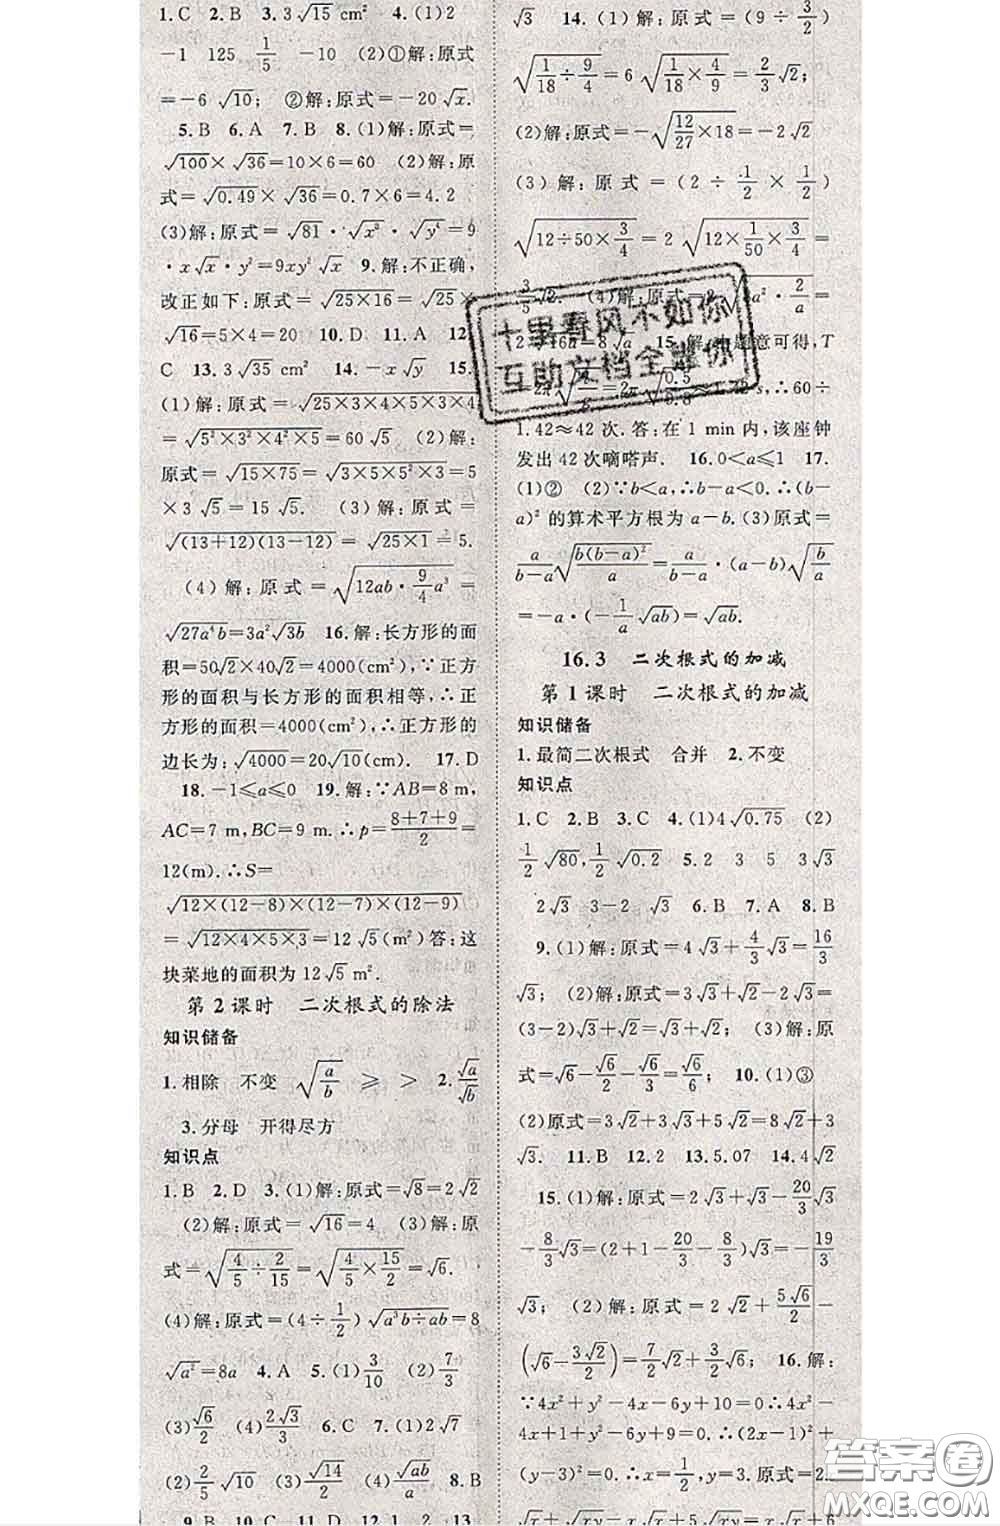 1.C 2.B 3.3√15 cm² 4.(1)2
-1 125 1/5 -10 (2)①解:原式
=-6√10; ②解:原式=-20√x.
5.B 6.A 7.B 8.(1)解:原式=
√100×√36=10×6=60 (2)解:原
式=√0.49×√36=0.7×6=4.2
(3)解:原式=√81·√x³·√y⁴=9
·x√x·y²=9xy²√x 9.解:不正确,
改正如下:原式=√(25×16)=√25×
√16=5×4=20 10.D 11.A 12.
C 13.3√35 cm² 14.-x√y 15.
(1)解:原式=√(25×3×4×5×3×4)
=√(5²×3²×4²×5)=60√5 (2)解:
原式=√(15×75)=√(3×5×5²×3)=5
×3√5=15√5. (3)解:原式=
√((13+12)(13-12))=√(25×1)=5.
(4)解:原式=√(12ab·9/4a³)=
√(27a⁴b)=3a²√3b 16.解:长方形的面
积=50√2×40√2=4000(cm²),∵正方
形的面积与长方形的面积相等,∴正
方形的面积=4000(cm²),∴正方形的
边长为:√4000=20√10(cm). 17.D
18.-1≤a≤0 19.解:∵AB=8 m,
AC=7 m,BC=9 m.∴p=(8+7+9)/2=
12(m).∴S=
√(12×(12-8)×(12-7)×(12-9))
=√(12×4×5×3)=12√5(m²)答:这
块菜地的面积为12√5 m².
第2课时 二次根式的除法
知识储备
1.相除 不变 √(a/b) ≥ > 2.√a/√b
3.分母 开得尽方
知识点
1.B 2.D 3.(1)解:原式=√8=2√2
(2)解:原式=√16=4 (3)解:原
式=√(4/5÷2/15)=√(4/5×15/2)=√6.
(4)解:原式=(4÷1/2)√(a³b÷ab)=8
√a²=8a 4.A 5.(1)3/10 (2)7/3
(3)√6/2 (4)2√3/3 6.C 7.(1)2√7
(2)2/5√10 (3)√14/2 (4)√ab/a 8.B
9.B 10.C 11.D 12.1 2 13.
√3 14.(1)解:原式=(9÷3/2)
√(1/18÷9/4)=6√(1/18×4/9)=2/3√2;
(2)解:原式=-√(12/27×18)=-2√2
(3)解:原式=(2÷1/2×1/2)
√(12÷50×3/4)=2√(12×1/50×3/4)=
3/5√2. (4)解:原式=2√(8a²·2/a)=
2√16a=8√a 15.解:由题意可得,T
1.42≈42次.答:在1 min内,该座钟
发出42次嘀嗒声. 16.0<a≤1 17.
(1)② (2)∵b<a,∴b-a<0.∴(b-
a)²的算术平方根为a-b.(3)原式=
a/(b-a)√(b(b-a)²/a)=a/(b-a)·(a-b)√(b/a)
=-a·(-1/a√ab)=√ab.
16.3 二次根式的加减
第1课时 二次根式的加减
知识储备
1.最简二次根式 合并 2.不变
知识点
1.C 2.B 3.C 4.(1)4√0.75 (2)
1/2√80,1/2√0.2 5.2 3 5 3√3
2√3 3-2 √3 6.B 7.A 8.B
9.(1)解:原式=4√3+4/3√3=16/3
√3; (2)解:原式=3√3+√2-2√3=
(3-2)√3+√2=√3+√2; (3)解:原
式=√6-√6/2-√6/3=√6/6; 10.(1)③
(2)原式=3√2+3√3+5√2=8√2+3
√3. 11.B 12.2 13.5.07 14.4√2
15.(1)解:原式=2√3+√3-20/3√3
-8/3√3=(2+1-20/3-8/3)√3=-19/3
√3; (2)解:原式=2√2+5√6/2-
(√6-3√2/2)=7/2√2+3/2√6; 16.解:
∵4x²+y²-4x-6y+10=0,∴4x²-
4x+y²-6y+9=0.∴(2x-1)²+
(y-3)²=0.∴x=1/2,y=3.原式=2x
十里春风不如你
互助文档全趣你
答案圈
MXQE.COM